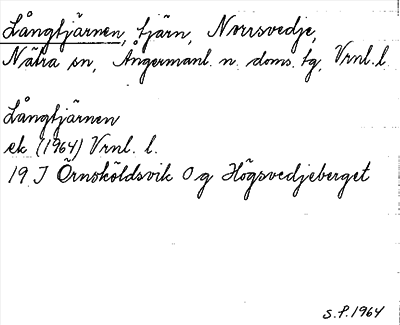 Långtjärnen, tjärn, Norrsvedje,
Nätra sn, Ångermanl. n. doms. tg, Vrnl. l.
Långtjärnen
ek (1964) Vrnl. l.
19 J Örnsköldsvik 0 g Högsvedjeberget
S.P. 1964